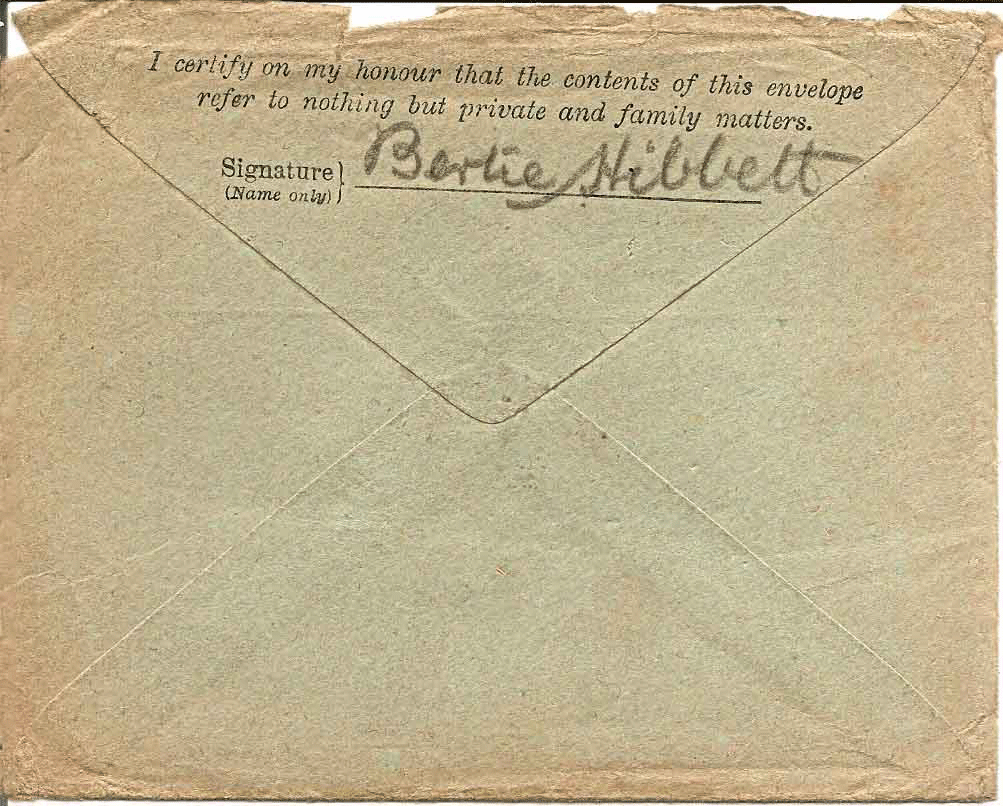 I certify on my honour that the contents of this envelope
refer to nothing but private and family matters.
Signature} Bertie Hibbett
(Name only)